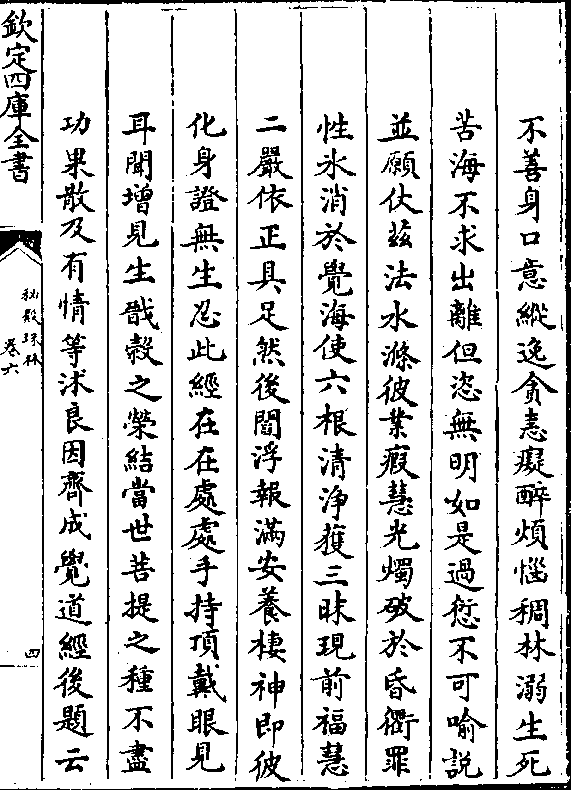 不善身口意縱逸貪恚癡醉煩惱稠林溺生死
苦海不求出離但恣無明如是過愆不可喻説
並願仗兹法水滌彼業瑕慧光燭破於昏衢罪
性氷消於覺海使六根清淨獲三昧現前福慧
二嚴依正具足然後閻浮報滿安養棲神即彼
化身證無生忍此經在在處處手持項戴眼見
耳聞增見生戩榖之榮結當世菩提之種不盡
功果散及有情等沭良因齊成覺道經後題云
欽定四庫全書
秘殿珠林
卷六
四